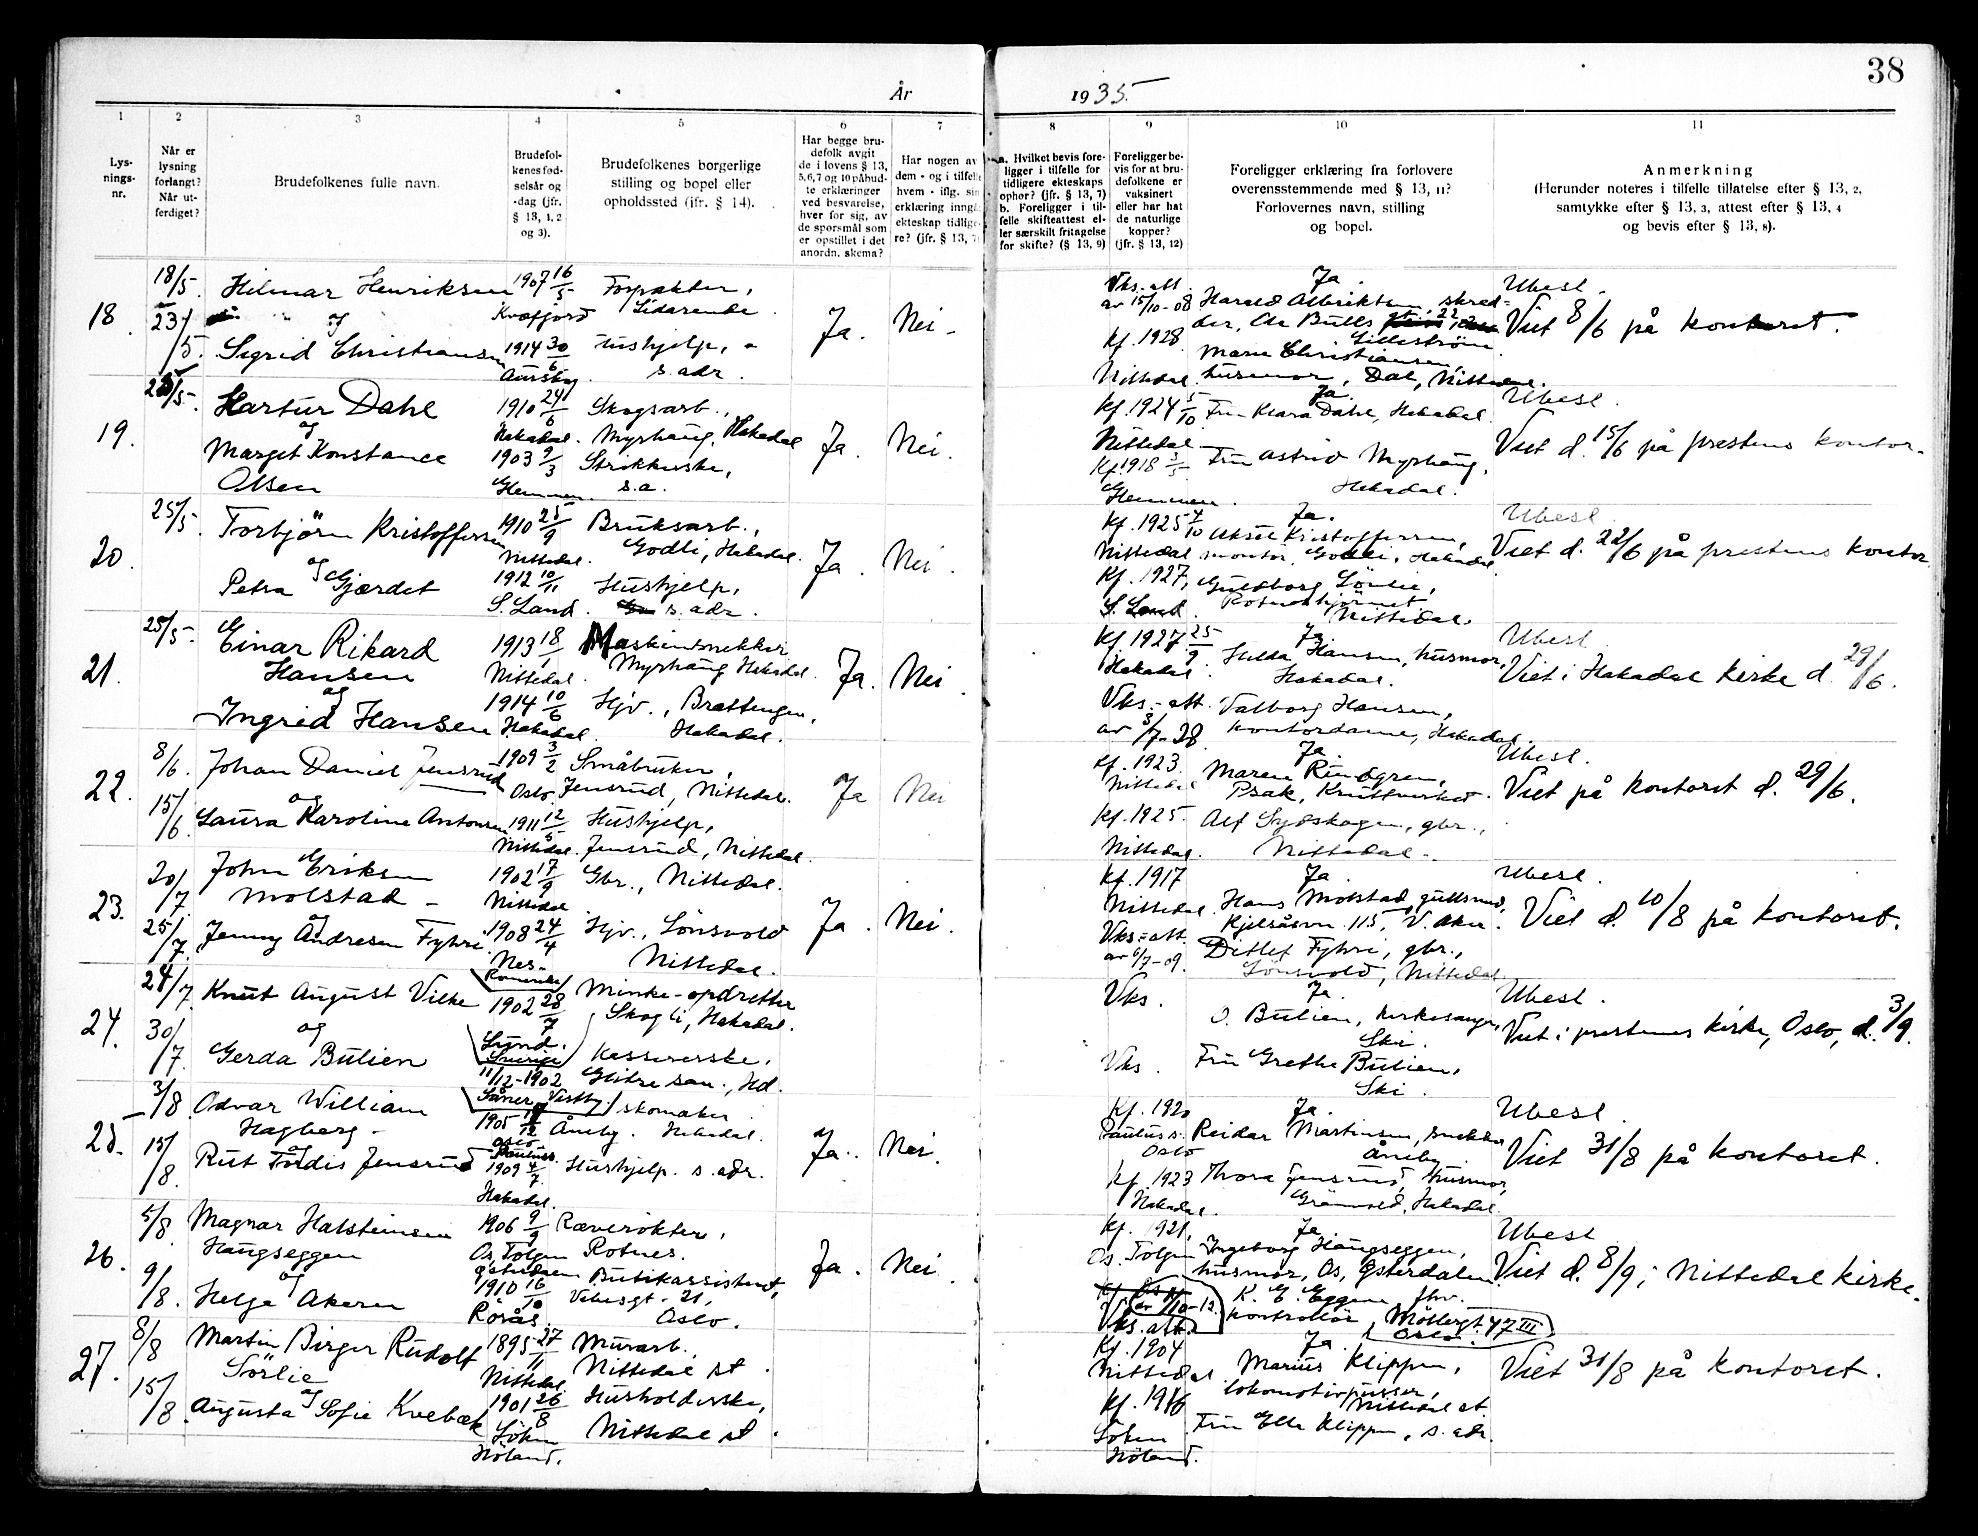 38
År 1935.
1
2
3
4
5
6
7
8
9
10
11
Lys-
nings-
nr.
Når er
lysning
forlangt?
Når ut-
ferdiget?
Brudefolkenes fulle navn.
Brudefol-
kenes fød-
selsår og
-dag (jfr.
§ 13, 1, 2
og 3).
Brudefolkenes borgerlige
stilling og bopel eller
opholdssted (jfr. § 14).
Har begge bru-
defolk avgit
de i lovens § 13,
5, 6, 7 og 10 påbud-
te erklæringer
ved besvarelse,
hver for sig, av
de spørsmål som
er opstillet i det
anordn. skema?
Har nogen av
dem - og i tilfelle
hvem - iflg. sin
erklæring inngå
ekteskap tidlige-
re? (jfr. § 13, 7
a. Hvilket bevis fore-
ligger i tilfelle for
tidligere ekteskaps
ophør? (jfr. § 13, 7)
b. Foreligger i til-
felle skifteattest el-
ler særskilt fritagelse
for skifte? (§ 13, 9)
Foreligger be-
vis for at bru-
defolkene er
vaksinert
eller har hat
de naturlige
kopper?
(jfr. § 13, 12)
Foreligger erklæring fra forlovere
overensstemmende med § 13, 11?
Forlovernes navn, stilling
og bopel.
Anmerkning
(Herunder noteres i tilfelle tillatelse efter § 13, 2,
samtykke efter § 13, 3, attest efter § 13, 4
og bevis efter § 13, 8).
18.
18/5.
23/5.
Hilmar Henriksen
og
Sigrid Christiansen
1907 16/5
Kvæfjord
1914 30/6
Aursby.
Forpakter,
Lidarende
Hushjelp,
s. adr.
Ja.
Nei
Vks. att.
av 15/10-08
Kf. 1928
Nittedal.
Ja.
Harald Albriktsen, skred-
der, Ole Bulls 22
Lillestrøm.
Marie Christiansen
husmor, Dal, Nittedal.
Ubesl.
Viet 8/6 på kontoret.
19.
23/5.
Hartur Dahl
og
Margit Konstance
Olsen
1910 24/6
Hakadal.
1903 9/3
Glemmen.
Skogsarb.,
Myrhaug, Hakadal
Strikkerske,
s.a.
Ja.
Nei.
Kf. 1924 5/10
Nittedal
Kf 1918 3/5
Glemmen.
Ja.
Fru Klara Dahl, Hakadal.
Fru Astrid Myrhaug,
Hakadal.
Ubesl.
Viet d. 15/6 på prestens kontor.
20.
25/5.
Torbjörn Kristoffersen
og
Petra Gjærdet
1910 25/9
Nittedal.
1912 10/11
S. Land.
Bruksarb.,
Godli, Hakadal.
Hushjelp,
s. adr.
Ja.
Nei.
Kf. 1925 4/10
Nittedal
Kf. 1927,
S. Land.
Ja.
Aksel Kristoffersen,
montör, Godli, Hakadal
Guldborg Sörlie,
Rotneshjörnet
Nittedal.
Ubesl.
Viet d. 22/6 på prestens kontor
21.
25/5.
Einar Rikard
Hansen
og
Ingrid Hansen
1913 18/1
Nittedal.
1914 10/6
Hakadal.
Maskinsnekker
Myrhaug Hakadal.
Hjv., Brattengen,
Hakadal.
Ja.
Nei.
Kf. 1927 25/9
Hakadal.
Vks.-att.
av 3/7-28
Ja.
Hilda Hansen, husmor,
Hakadal.
Valborg Hansen,
kontordame, Hakadal.
Ubesl.
Viet i Hakadal kirke d. 29/6.
22.
8/6.
15/6.
Johan Daniel Jensrud
og
Laura Karoline Antonsen
1909 3/2
Oslo.
1911 12/5
Nittedal.
Småbruker,
Jensrud, Nittedal.
Hushjelp,
Jensrud, Nittedal.
Ja
Nei
Kf. 1923.
Nittedal
Kf. 1925.
Nittedal.
Ja
Maren Rundgren,
Psak, Kruttverket.
Alf Sydskogen, gbr.,
Nittedal.
Ubesl.
Viet på kontoret d. 29/6.
23.
20/7
25/7.
John Eriksen
Molstad
og
Jenny Andresen Fyhri
1902 17/9
Nittedal
1908 24/4
Nes
Romerike
Gbr., Nittedal.
Hjv., Lönsvold
Nittedal.
Ja.
Nei.
Kf. 1917
Nittedal.
Vks.-att.
av 6/7-09.
Ja.
Hans Molstad, gullsmed,
Kjelsåsvn 115, V. Aker.
Ditlef Fyhri, gbr.,
Lönsvold, Nittedal.
Ubesl.
Viet d. 10/8 på kontoret.
24.
24/7.
30/7
Knut August Vilke
og
Gerda Bulien
1902 28/7
Lund.
Sverige
11/12-1902
Såner, Vestby.
Minke-opdretter
Skogli, Hakadal.
Kassererske,
Glitre san., Hd.
Vks.
Vks.
Ja.
O. Bulien, kirkesanger,
Ski.
Fru Grethe Bulien,
Ski.
Ubesl.
Viet i prestenes kirke, Oslo, d. 3/9.
25.
3/8
15/8.
Odvar William
Hagberg
og
Rut Tordis Jensrud
1905 17/12
Oslo
Paulus s.
1909 4/7
Hakadal.
Skomaker
Åneby. Hakadal.
Hushjelp. s. adr.
Ja.
Nei.
Kf. 1920
Paulus s.
Oslo
Kf. 1923
Hakadal.
Ja.
Reidar Martinsen, snekker
Åneby
Thora Jensrud, husmor,
Grönvold, Hakadal.
Ubesl.
Viet 31/8 på kontoret.
26.
5/8.
9/8.
Magnar Halsteinsen
Haugseggen
og
Helga Akeren
1906 9/9
Os, Tolgen
Österdalen
1910 16/10
Rörås.
Ræverökter,
Rotnes.
Butikassistent,
Vibesgt. 21,
Oslo.
Ja.
Nei.
Kf. 1921,
Os. Tolgen
av 1/10-12.
Vks. att.
Ja
Ingeborg Haugseggen,
husmor, Os, Österdalen
K. E. Eggen, fhv.
kontrollör, Möllergt. 47 III
Oslo.
Ubesl.
Viet d. 8/9 i Nittedal kirke.
27.
8/8
15/8.
Martin Birger Rudolf
Sörlie
og
Augusta Sofie Kvebæk
1895 27/11
Nittedal
1901 26/8
Löken
Höland.
Murarb.,
Nittedal st.
Husholderske,
Nittedal st.
Kf. 1904
Nittedal.
Kf. 1916
Löken
Höland.
Ja.
Marius Klippen,
lokomotivpusser,
Nittedal st
Fru Ella Klippen, s. adr.
Viet 31/8 på kontoret.